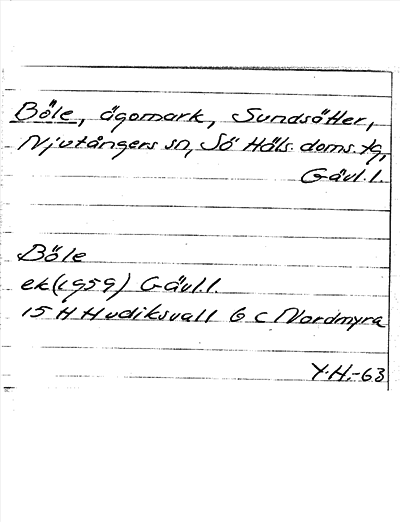 Böle, ägomark, Sundsätter,
Njutångers sn, Sö Häls. doms. tg,
Gävl. l.
Böle
ek (1959) Gävl l.
15 H Hudiksvall 6 c Nordmyra
Y.H.-63